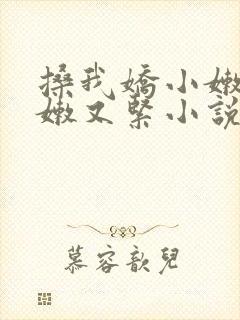 搡我嬌小嫩
嫩又緊小說
慕容歆兒